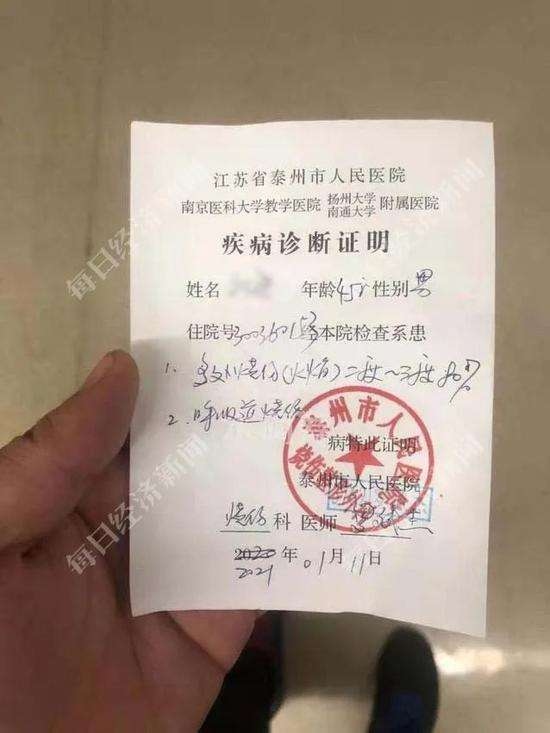 江苏省泰州市人民医院
南京医科大学教学医院 扬州大学 南通大学 附属医院
疾病诊断证明
姓名 年龄45岁性别男
住院号 经本院检查系患
1. 多处烧伤(火焰)二度~三度80%
2. 呼吸道烧伤
病特此证明
泰州市人民医院
烧伤科 医师
2020 年 01月11日
2021
泰州市人民医院
烧伤整形外科
每日经济新闻
每日经济新闻
每日经济新闻